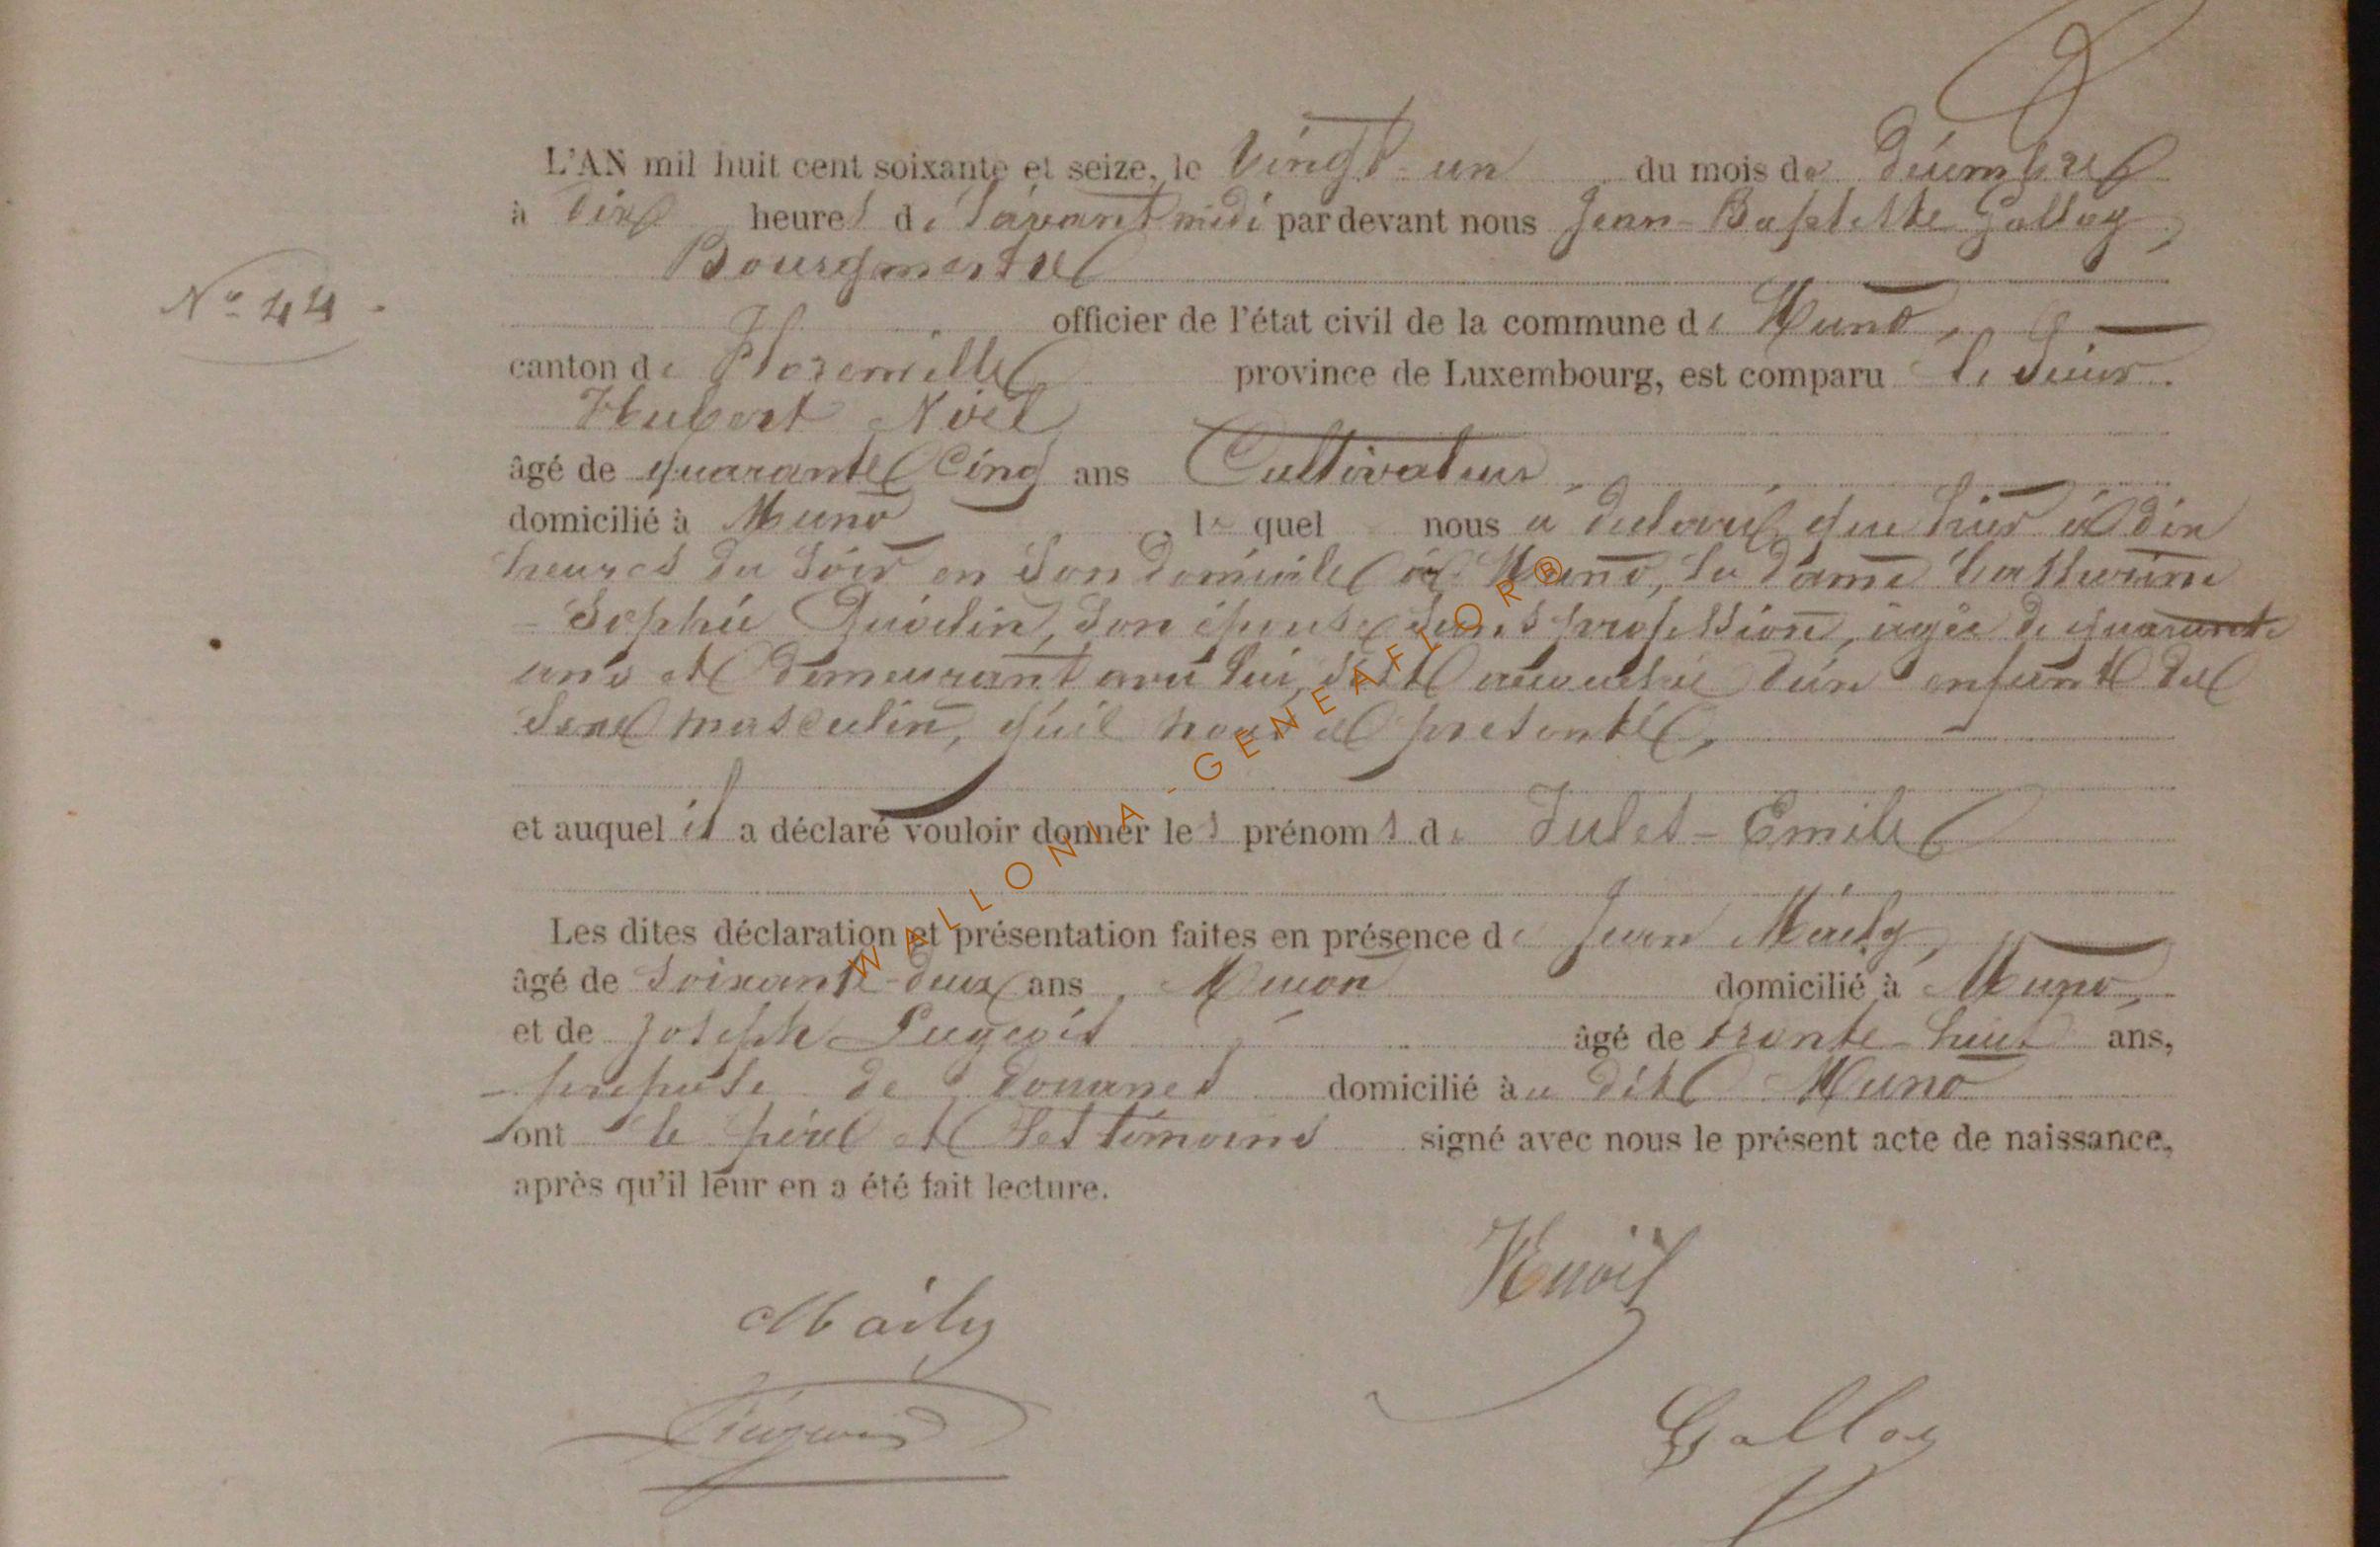 L'AN mil huit cent soixante et seize, le vingt-un du mois de décembre
à dix heures de l'avant midi par devant nous Jean-Baptiste Galloy,
Bourgmestre
N° 44
officier de l'état civil de la commune de Muno,
canton de Florenville province de Luxembourg, est comparu le sieur
Hubert Noël
âgé de quarante cinq ans Cultivateur,
domicilié à Muno, lequel nous a déclaré que hier à dix
heures du soir en son domicile à Muno, la dame Catherine
Sophie son épouse sans profession, agée de quarante
ans et demeurant avec lui, est accouchée d'un enfant du
sexe masculin, qu'il nous a presenté,
et auquel il a déclaré vouloir donner les prénoms de Jules-Emile
Les dites déclaration et présentation faites en présence de Jean Maily,
âgé de soixante-deux ans, Maçon domicilié à Muno,
et de Joseph âgé de trente-huit ans,
préposé de douanes domicilié au dit Muno
ont le père et les témoins signé avec nous le présent acte de naissance,
après qu'il leur en a été fait lecture.
HNoël
Maily
Galloy
WALLONIA-GENEAFLOR®